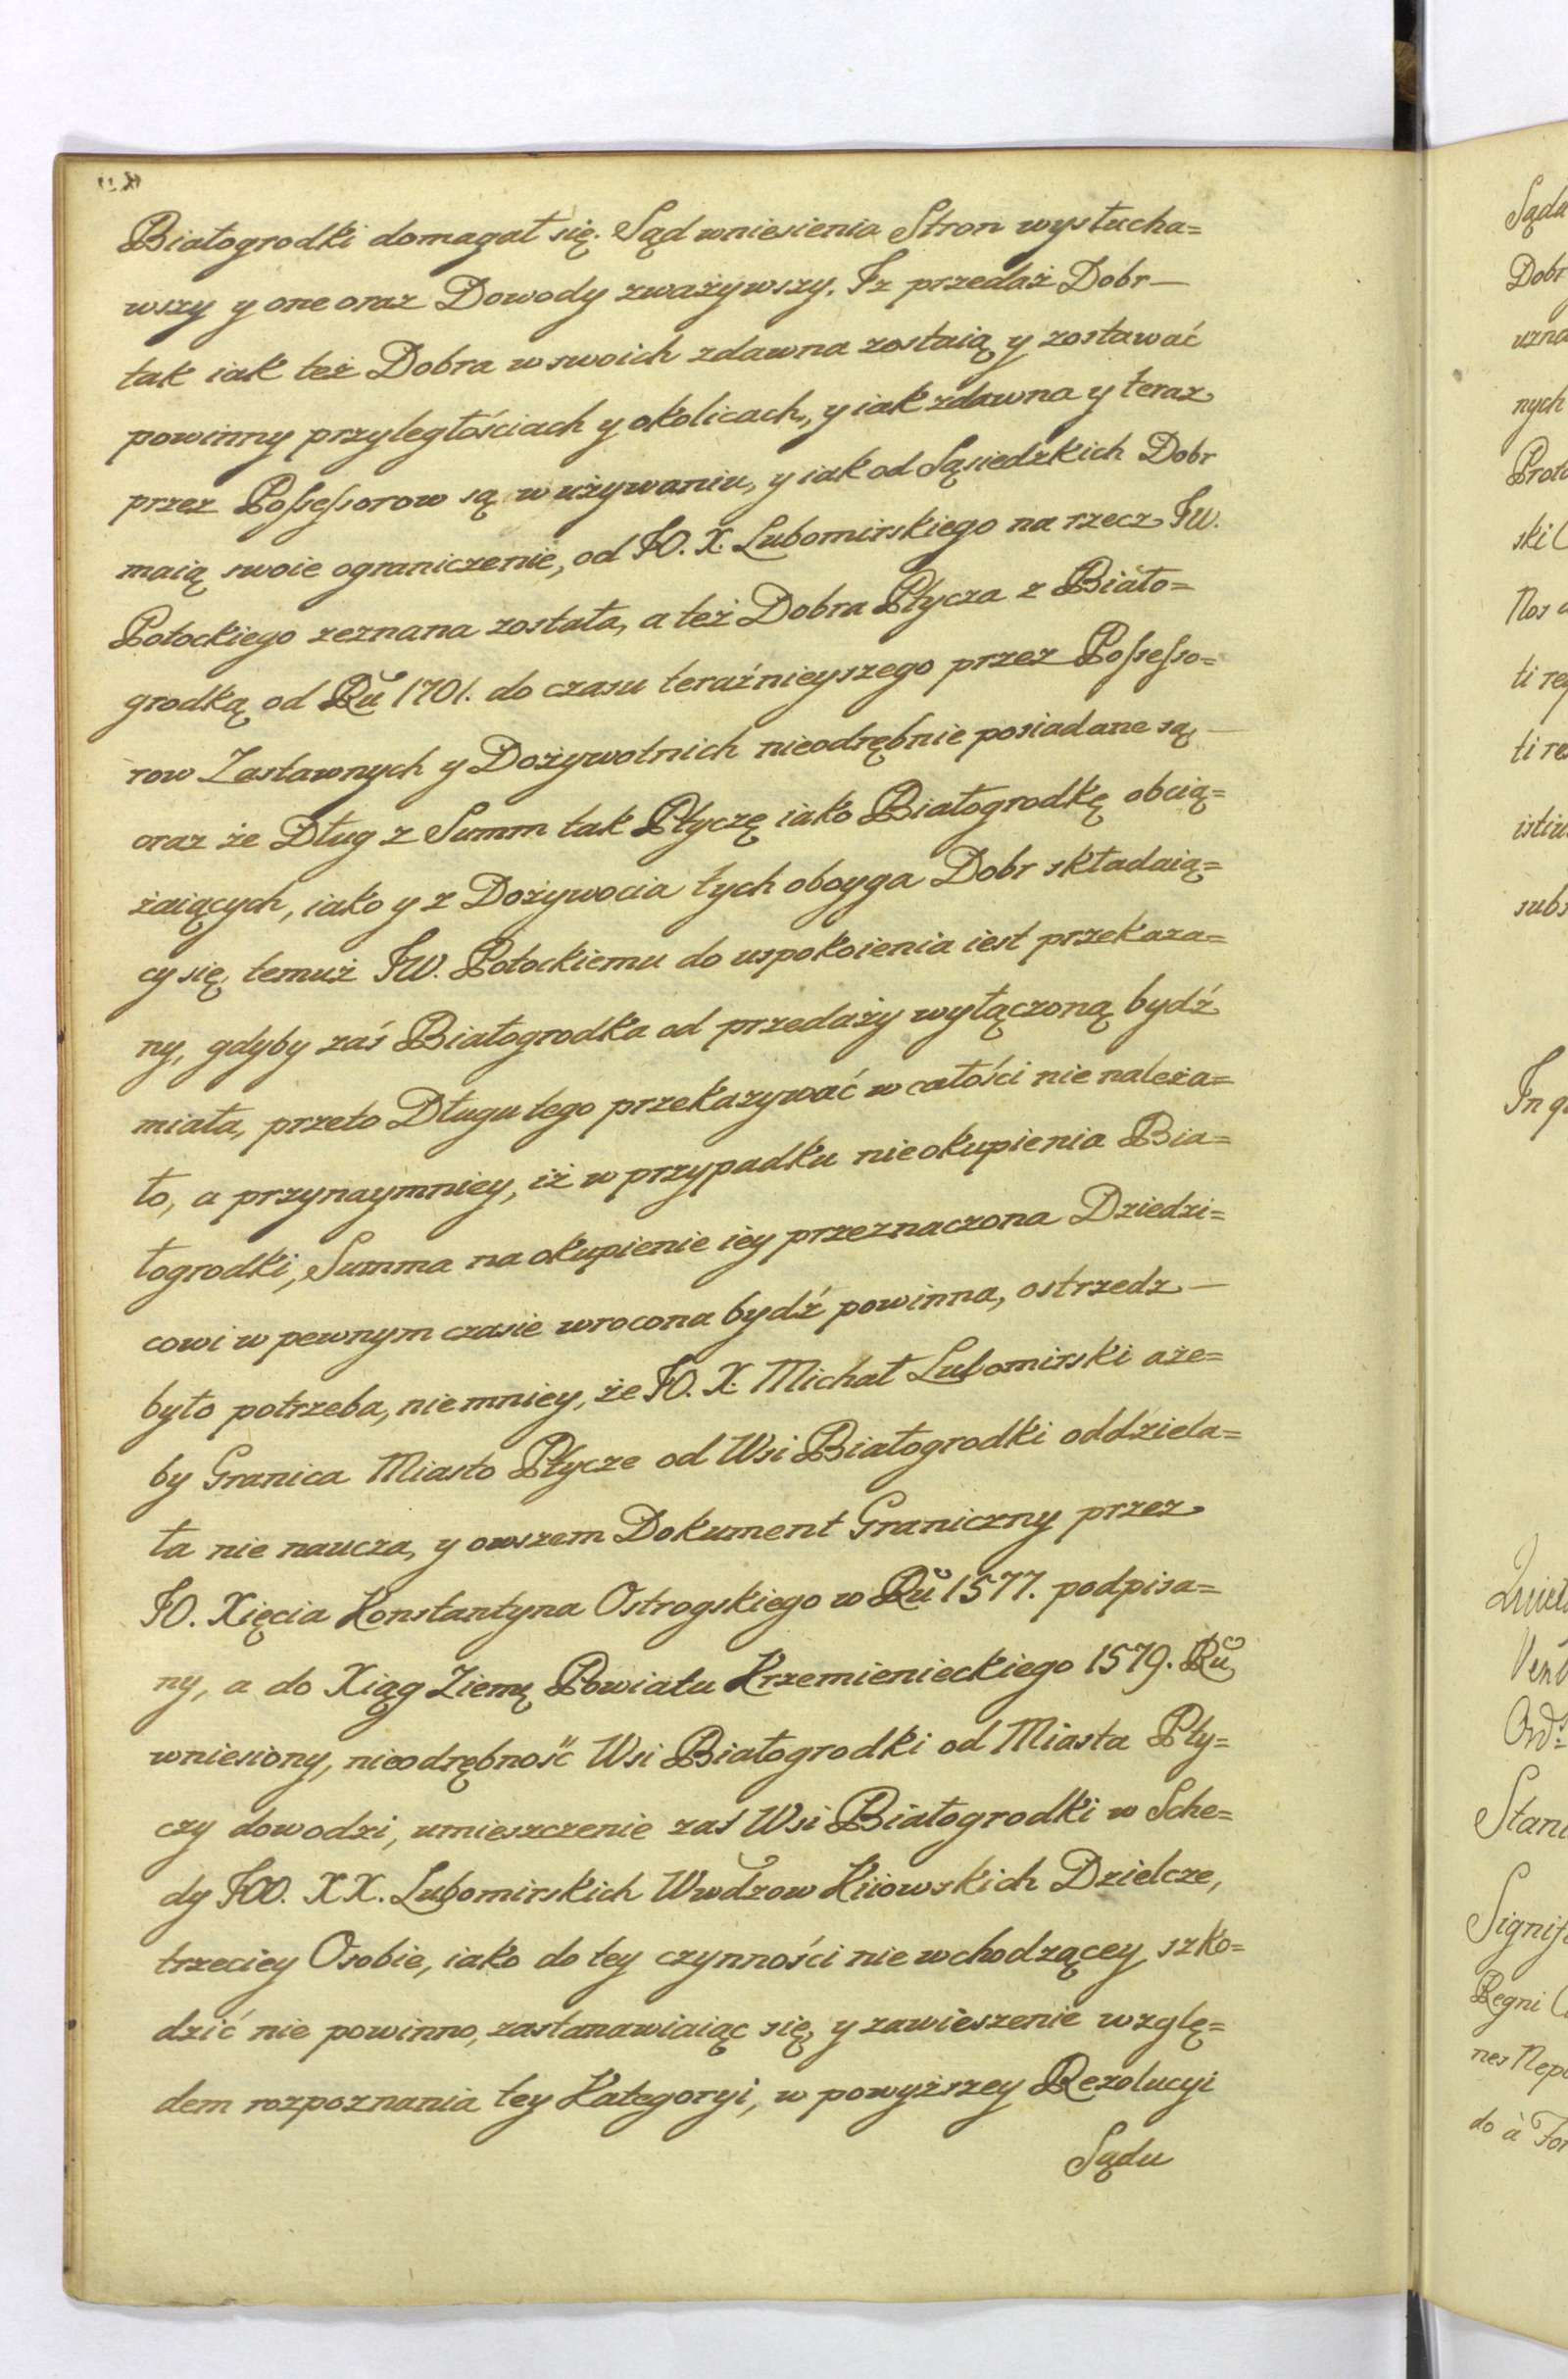 Białogrodki domagał się. Sąd wniesienia Stron wysłucha=
wszy y one oraz Dowody zważywszy. Iz przedaż Dobr —
tak iak też Dobra w swoich zdawna zostaią y zostawać
powinny przyległościach y okolicach, y iak zdawna y teraz
przez Possessorow są w używaniu, y iak od Sąsiedzkich Dobr
maią swoie ograniczenie, od JO. X. Lubomirskiego na rzecz JW.
Potockiego zeznana została, a też Dobra Płycza z Biało=
grodką od Ru 1701. do czasu teraźnieyszego przez Possesso=
row Zastawnych y Dożywotnich nieodrębnie posiadane są —
oraz że Dług z Summ tak Płyczę iako Białogrodkę obcią=
żaiących, iako y z Dożywocia tych oboyga Dobr składaią=
cy się, temuż JW. Potockiemu do uspokoienia iest przekaza=
ny, gdyby zaś Białogrodka od przedaży wyłączoną bydź
miała, przeto Długu tego przekazywać w całości nie należa=
ło, a przynaymniey, iż w przypadku nieokupienia Bia=
łogrodki, Summa na okupienie iey przeznaczona Dziedzi=
cowi w pewnym czasie wrocona bydź powinna, ostrzedz —
było potrzeba, niemniey, że JO. X. Michał Lubomirski aże=
by Granica Miasto Płycze od Wsi Białogrodki oddziela=
ła nie naucza, y owszem Dokument Graniczny przez
JO. Xięcia Konstantyna Ostrogskiego w Ru 1577. podpisa=
ny, a do Xiąg Ziemą Powiatu Krzemienieckiego 1579. Ru
wniesiony, nieodrębność Wsi Białogrodki od Miasta Pły=
czy dowodzi, umieszczenie zaś Wsi Białogrodki w Sche=
dy JOO. XX. Lubomirskich Wwdzow Kiiowskich Dzielcze,
trzeciey Osobie, iako do tey czynności nie wchodzącey, szko=
dzić nie powinno, zastanawiaiąc się, y zawieszenie wzglę=
dem rozpoznania tey Kategoryi, w powyższey Rezolucyi
Sądu
Sąda
Dobr
uzna
nych
ski
Nos
ti re
istiu
subs
In q
Stan
Signif
Regni
nes Nep
do à For